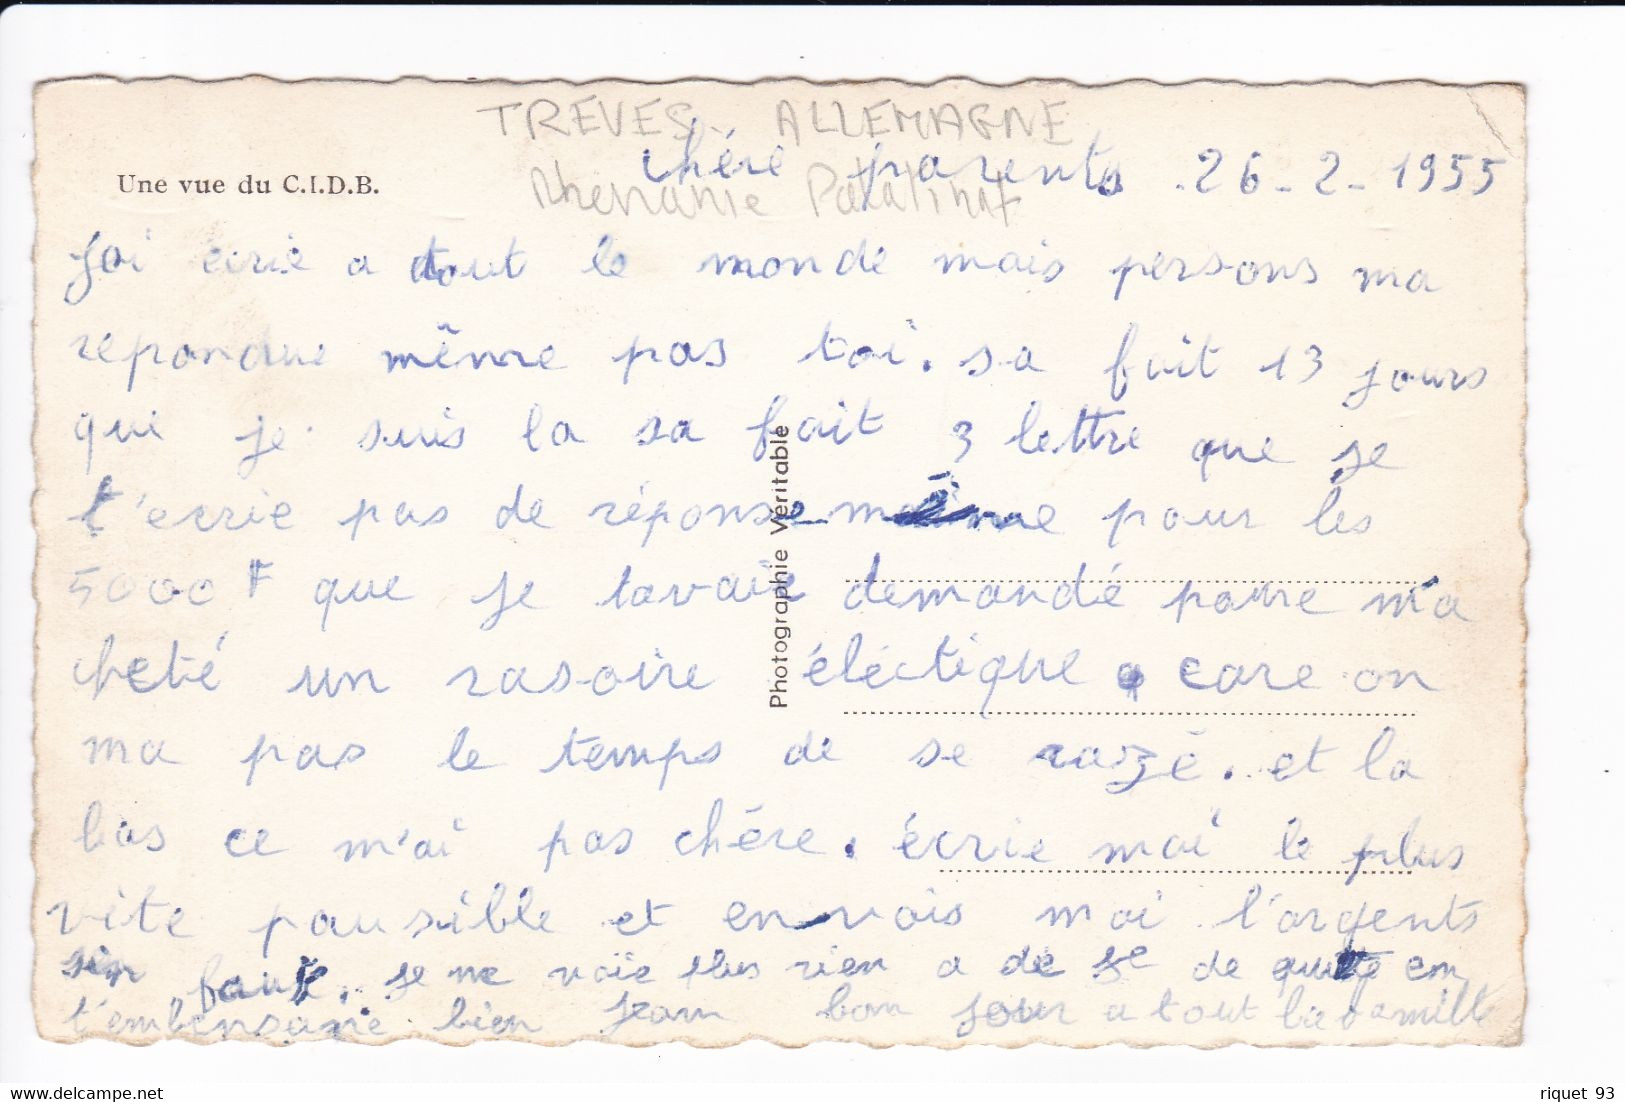 TREVES - ALLEMAGNE
Rhénanie Palatinat
Une vue du C.I.D.B.
chère parents 26-2-1955
J'ai écrie a tout le monde mais persons ma
repondue même pas toi. sa fait 13 jours
que je suis la sa fait 3 lettre que je
t'ecrie pas de réponse même pour les
5000 F que je tavaie demandé poure m'a
cheté un rasoire éléctique care on
ma pas le temps de se razé. et la
bas ce m'ai pas chére. écrie moi le plus
vite pausible et envois moi l'argents
sin faut. je ne voie plus rien a de je de quité en
t'embrasane bien Jean bon jour a tout la famille
Photographie Véritable
riquet 93